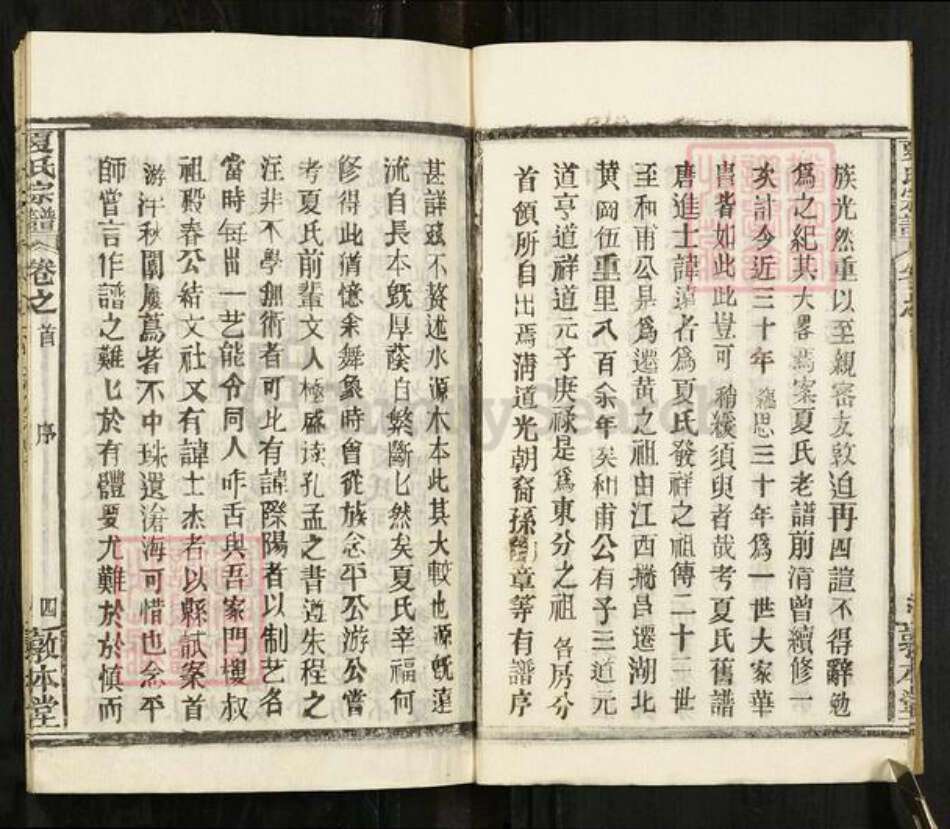 族光然重以至親密友敦迫再四諠不得辭勉
爲之紀其大畧焉案夏氏老譜前清曾續修一
次計今近三十年竊思三十年爲一世大家華
胄皆如此此豈可稍緩須臾者哉考夏氏舊譜
唐進士諱遠者爲夏氏發祥之祖傳二十三世
至和甫公昇爲遷黃之祖由江西 昌遷湖北
黃岡伍重里八百余年矣和甫公有子三道元
道亨道祥道元子庚祿是爲東分之祖各房分
首領所自出焉溝道光朝裔孫 章等有譜序
甚詳茲不贅述水源木本此其大較也源旣遠
流自長本旣厚蔭自繁斷匕然矣夏氏幸福何
修得此猶憶余舞象時曾從族念平公游公嘗
考夏氏前輩文人極盛讀孔孟之書遵朱程之
注非不學無術者可比有諱際陽者以制艺名
當時每出一艺能令同人咋舌與吾家門樓叔
祖殿春公結文社又有諱士杰者以縣試案首
游泮秋闈屢薦者不中珠還滄海可惜也念平
師嘗言作譜之難匕於有體要尤難於於慎而
夏氏宗譜 卷之首 序 四 敦本堂